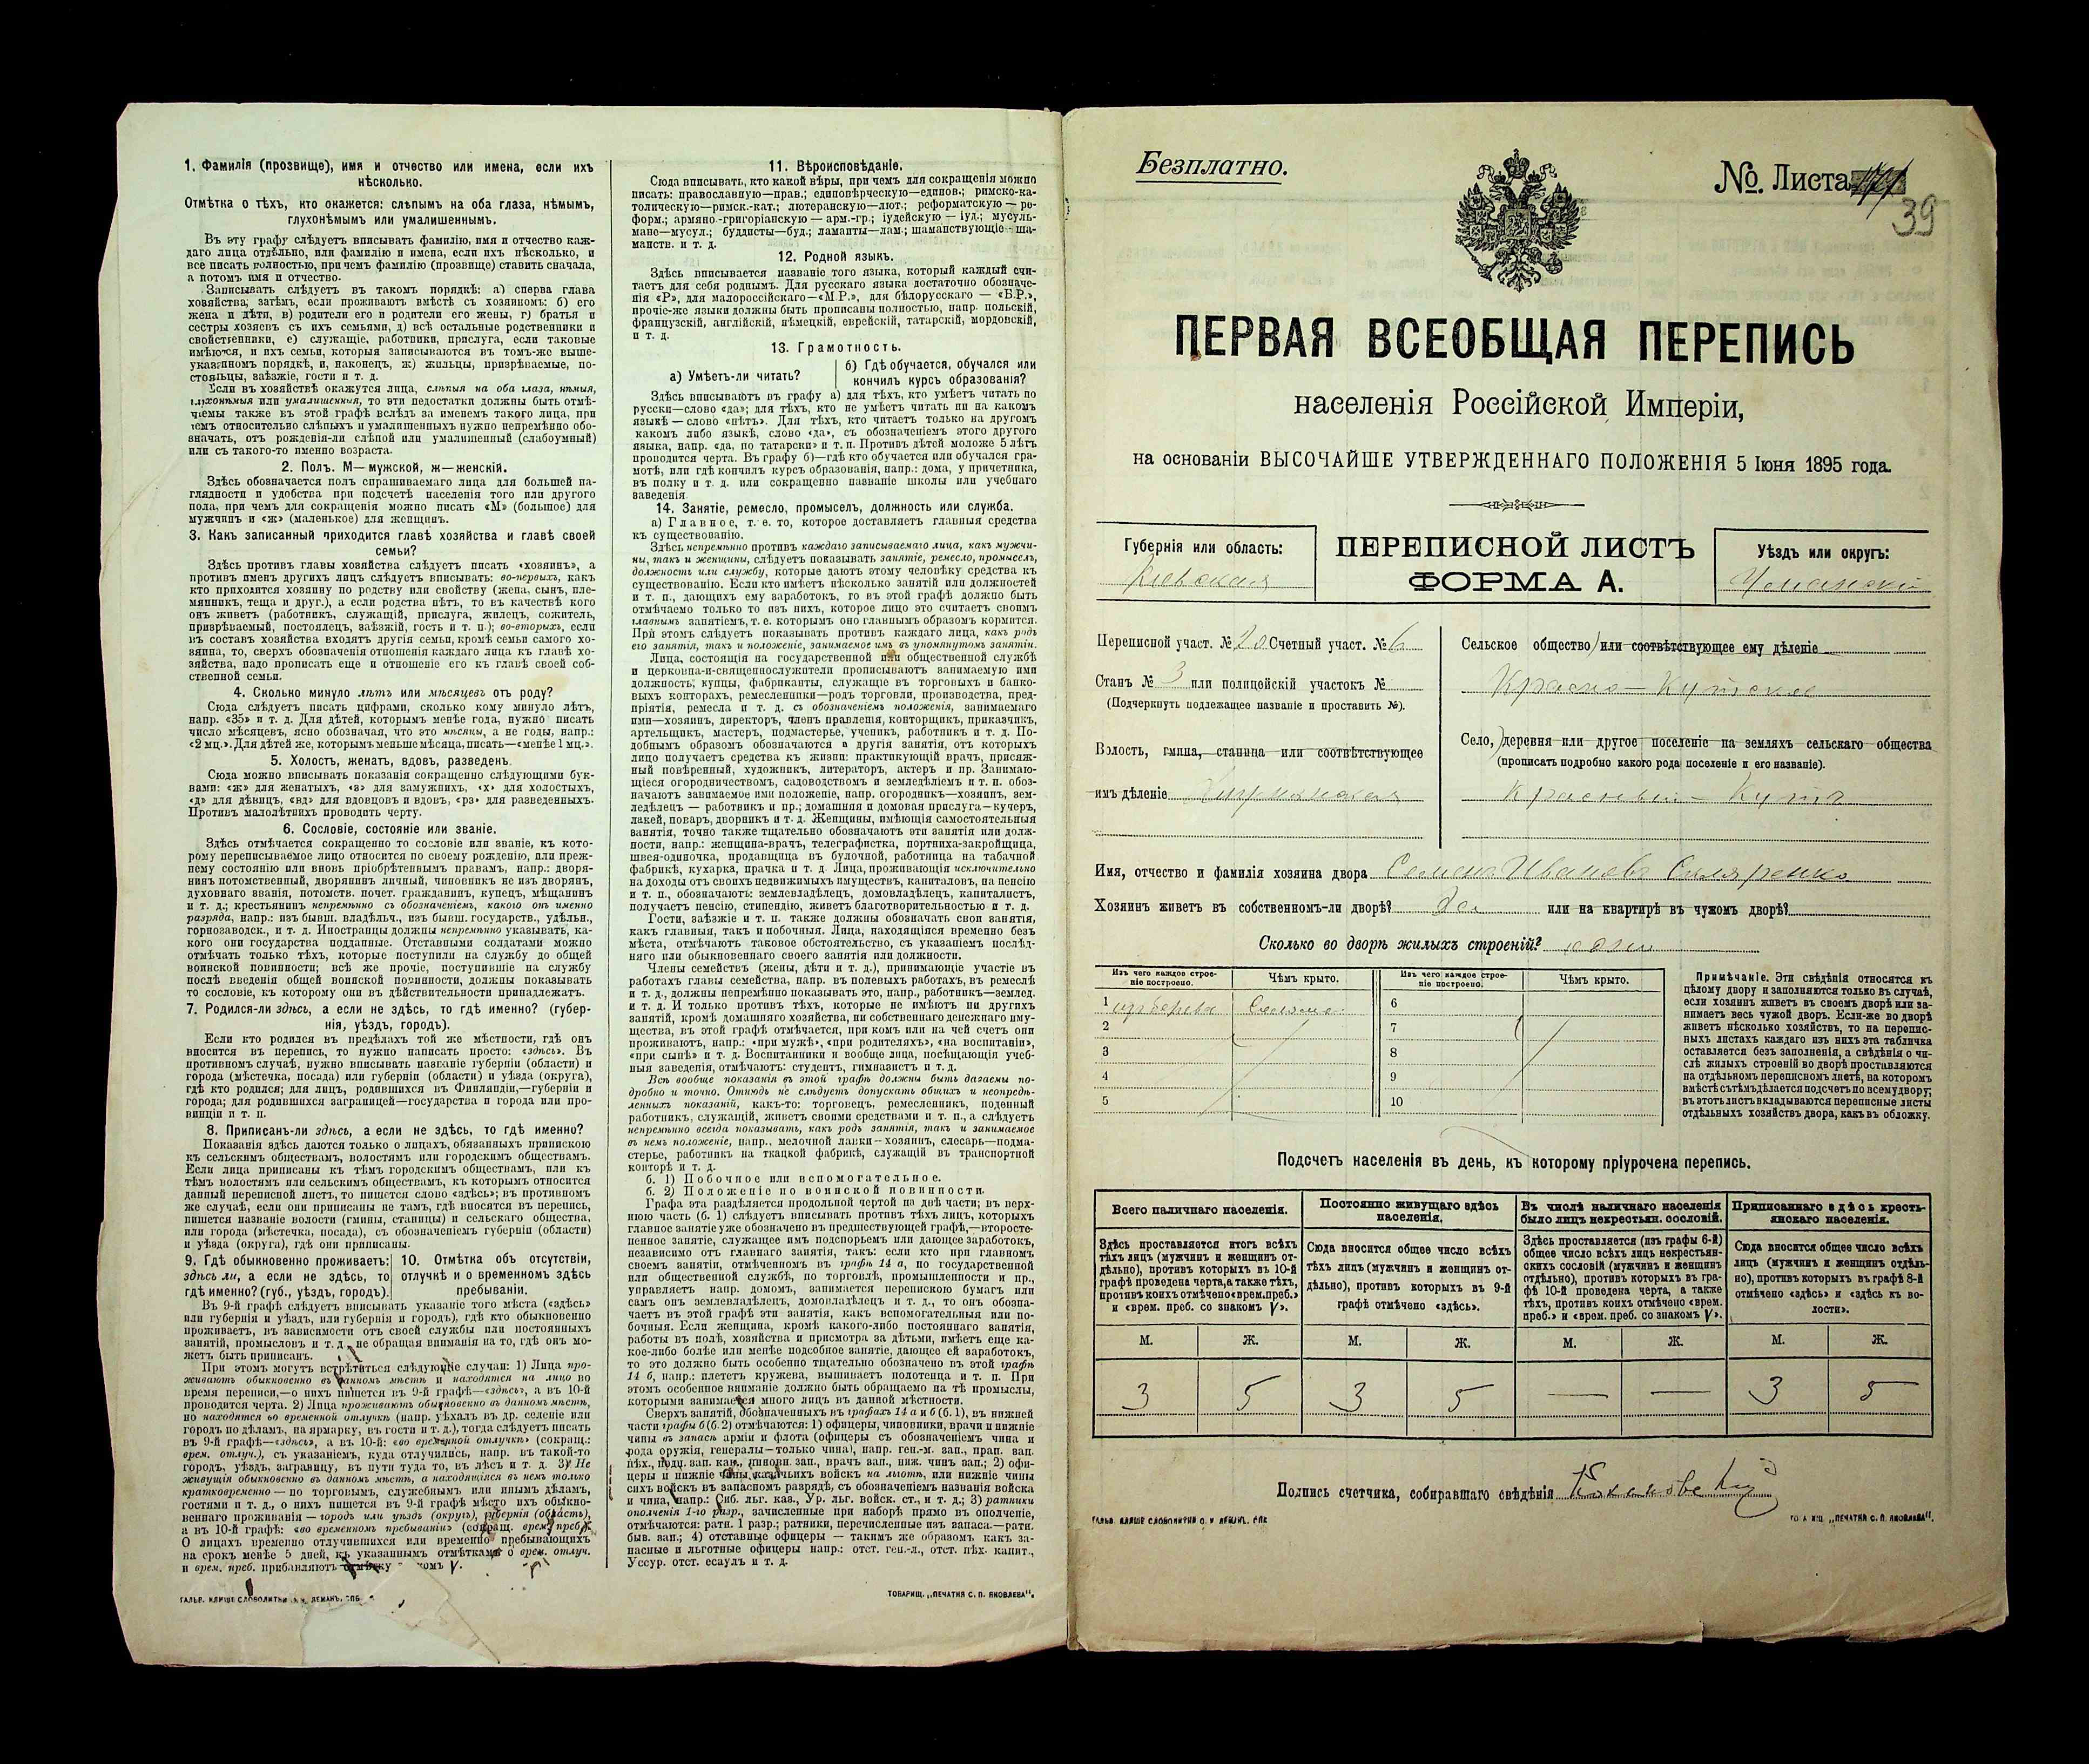 1. Фамилія (прозвище), имя и отчество или имена, если ихъ
нѣсколько.
Отмѣтка о тѣхъ, кто окажется: слѣпымъ на оба глаза, нѣмымъ,
глухонѣмымъ или умалишеннымъ.
Въ эту графу слѣдуетъ вписывать фамилію, имя и отчество каж-
даго лица отдѣльно, или фамилію и имена, если ихъ нѣсколько, и
все писать полностью, при чемъ фамилію (прозвище) ставить сначала,
а потомъ имя и отчество.
Записывать слѣдуетъ въ такомъ порядкѣ: а) сперва глава
хозяйства, затѣмъ, если проживаютъ вмѣстѣ съ хозяиномъ: б) его
жена и дѣти, в) родители его и родители его жены, г) братья и
сестры хозяевъ съ ихъ семьями, д) всѣ остальные родственники и
свойственники, е) служащіе, работники, прислуга, если таковые
имѣются, и ихъ семьи, которыя записываются въ томъ-же выше-
указанномъ порядкѣ, и, наконецъ, ж) жильцы, призрѣваемые, по-
стояльцы, заѣзжіе, гости и т. д.
Если въ хозяйствѣ окажутся лица, слѣпыя на оба глаза, нѣмыя,
глухонѣмыя или умалишенныя, то эти недостатки должны быть отмѣ-
чаемы также въ этой графѣ вслѣдъ за именемъ такого лица, при
чемъ относительно слѣпыхъ и умалишенныхъ нужно непремѣнно обо-
значать, отъ рожденія-ли слѣпой или умалишенный (слабоумный)
или съ такого-то именно возраста.
2. Полъ. М—мужской, ж—женскій.
Здѣсь обозначается полъ спрашиваемаго лица для большей на-
глядности и удобства при подсчетѣ населенія того или другого
пола, при чемъ для сокращенія можно писать «М» (большое) для
мужчинъ и «ж» (маленькое) для женщинъ.
3. Какъ записанный приходится главѣ хозяйства и главѣ своей
семьи?
Здѣсь противъ главы хозяйства слѣдуетъ писать «хозяинъ», а
противъ именъ другихъ лицъ слѣдуетъ вписывать: во-первыхъ, какъ
кто приходится хозяину по родству или свойству (жена, сынъ, пле-
мянникъ, теща и друг.), а если родства нѣтъ, то въ качествѣ кого
онъ живетъ (работникъ, служащій, прислуга, жилецъ, сожитель,
призрѣваемый, постоялецъ, заѣзжій, гость и т. п.); во-вторыхъ, если
въ составъ хозяйства входятъ другія семьи, кромѣ семьи самого хо-
зяина, то, сверхъ обозначенія отношенія каждаго лица къ главѣ хо-
зяйства, надо прописать еще и отношеніе его къ главѣ своей соб-
ственной семьи.
4. Сколько минуло лѣтъ или мѣсяцевъ отъ роду?
Сюда слѣдуетъ писать цифрами, сколько кому минуло лѣтъ,
напр. «35» и т. д. Для дѣтей, которымъ менѣе года, нужно писать
число мѣсяцевъ, ясно обозначая, что это мѣсяцы, а не годы, напр.:
«2 мц.». Для дѣтей же, которымъ меньше мѣсяца, писать—«менѣе 1 мц.».
5. Холостъ, женатъ, вдовъ, разведенъ.
Сюда можно вписывать показанія сокращенно слѣдующими бук-
вами: «ж» для женатыхъ, «з» для замужнихъ, «х» для холостыхъ,
«д» для дѣвицъ, «вд» для вдовцовъ и вдовъ, «рз» для разведенныхъ.
Противъ малолѣтнихъ проводить черту.
6. Сословіе, состояніе или званіе.
Здѣсь отмѣчается сокращенно то сословіе или званіе, къ кото-
рому переписываемое лицо относится по своему рожденію, или преж-
нему состоянію или вновь пріобрѣтеннымъ правамъ, напр.: дворя-
нинъ потомственный, дворянинъ личный, чиновникъ не изъ дворянъ,
духовнаго званія, потомств. почет. гражданинъ, купецъ, мѣщанинъ
и т. д.; крестьянинъ непремѣнно съ обозначеніемъ, какого онъ именно
разряда, напр.: изъ бывш. владѣльч., изъ бывш. государств., удѣльн.,
горнозаводск., и т. д. Иностранцы должны непремѣнно указывать, ка-
кого они государства подданные. Отставными солдатами можно
отмѣчать только тѣхъ, которые поступили на службу до общей
воинской повинности; всѣ же прочіе, поступившіе на службу
послѣ введенія общей воинской повинности, должны показывать
то сословіе, къ которому они въ дѣйствительности принадлежатъ.
7. Родился-ли здѣсь, а если не здѣсь, то гдѣ именно? (губер-
нія, уѣздъ, городъ).
Если кто родился въ предѣлахъ той же мѣстности, гдѣ онъ
вносится въ перепись, то нужно написать просто: «здѣсь». Въ
противномъ случаѣ, нужно вписывать названіе губерніи (области) и
города (мѣстечка, посада) или губерніи (области) и уѣзда (округа),
гдѣ кто родился; для лицъ, родившихся въ Финляндіи,—губерніи и
города; для родившихся заграницей—государства и города или про-
винціи и т. п.
8. Приписанъ-ли здѣсь, а если не здѣсь, то гдѣ именно?
Показанія здѣсь даются только о лицахъ, обязанныхъ припискою
къ сельскимъ обществамъ, волостямъ или городскимъ обществамъ.
Если лица приписаны къ тѣмъ городскимъ обществамъ, или къ
тѣмъ волостямъ или сельскимъ обществамъ, къ которымъ относится
данный переписной листъ, то пишется слово «здѣсь»; въ противномъ
же случаѣ, если они приписаны не тамъ, гдѣ вносятся въ перепись,
пишется названіе волости (гмины, станицы) и сельскаго общества,
или города (мѣстечка, посада), съ обозначеніемъ губерніи (области)
и уѣзда (округа), гдѣ они приписаны.
9. Гдѣ обыкновенно проживаетъ:
здѣсь ли, а если не здѣсь, то
гдѣ именно? (губ., уѣздъ, городъ).
10. Отмѣтка объ отсутствіи,
отлучкѣ и о временномъ здѣсь
пребываніи.
Въ 9-й графѣ слѣдуетъ вписывать указаніе того мѣста («здѣсь»
или губернія и уѣздъ, или губернія и городъ), гдѣ кто обыкновенно
проживаетъ, въ зависимости отъ своей службы или постоянныхъ
занятій, промысловъ и т. д., не обращая вниманія на то, гдѣ онъ мо-
жетъ быть приписанъ.
При этомъ могутъ встрѣтиться слѣдующіе случаи: 1) Лица про-
живаютъ обыкновенно въ данномъ мѣстѣ и находятся на лицо во
время переписи,—о нихъ пишется въ 9-й графѣ—«здѣсь», а въ 10-й
проводится черта. 2) Лица проживаютъ обыкновенно въ данномъ мѣстѣ,
но находятся во временной отлучкѣ (напр. уѣхалъ въ др. селеніе или
городъ по дѣламъ, на ярмарку, въ гости и т. д.), тогда слѣдуетъ писать
въ 9-й графѣ—«здѣсь», а въ 10-й: «во временной отлучкѣ» (сокращ.:
врем. отлуч.), съ указаніемъ, куда отлучились, напр. въ такой-то
городъ, уѣздъ, заграницу, въ пути туда то, въ лѣсъ и т. д. 3) Не
живущія обыкновенно въ данномъ мѣстѣ, а находящіяся въ немъ только
кратковременно — по торговымъ, служебнымъ или инымъ дѣламъ,
гостями и т. д., о нихъ пишется въ 9-й графѣ мѣсто ихъ обыкно-
веннаго проживанія — городъ или уѣздъ (округъ), губернія (область),
а въ 10-й графѣ: «во временномъ пребываніи» (сокращ. врем. преб.).
О лицахъ временно отлучившихся или временно пребывающихъ
на срокъ менѣе 5 дней, къ указаннымъ отмѣткамъ о врем. отлуч.
и врем. преб. прибавляютъ V.
ГАЛЬВ. КЛИШЕ СЛОВОЛИТНИ О. И. ЛЕМАНЪ, СПБ
11. Вѣроисповѣданіе.
Сюда вписывать, кто какой вѣры, при чемъ для сокращенія можно
писать: православную—прав.; единовѣрческую—единов.; римско-ка-
толическую—римск.-кат.; лютеранскую—лют.; реформатскую — ре-
форм.; армяно-григоріанскую — арм.-гр.; іудейскую — іуд.; мусуль-
мане—мусул.; буддисты—буд.; ламаиты—лам.; шаманствующіе—ша-
манств. и т. д.
12. Родной языкъ.
Здѣсь вписывается названіе того языка, который каждый счи-
таетъ для себя роднымъ. Для русскаго языка достаточно обозначе-
нія «Р», для малороссійскаго—«М.Р.», для бѣлорусскаго — «Б.Р.»,
прочіе-же языки должны быть прописаны полностью, напр. польскій,
французскій, англійскій, нѣмецкій, еврейскій, татарскій, мордовскій,
и т. д.
13. Грамотность.
а) Умѣетъ-ли читать?
б) Гдѣ обучается, обучался или
кончилъ курсъ образованія?
Здѣсь вписываютъ въ графу а) для тѣхъ, кто умѣетъ читать по
русски—слово «да»; для тѣхъ, кто не умѣетъ читать ни на какомъ
языкѣ — слово «нѣтъ». Для тѣхъ, кто читаетъ только на другомъ
какомъ либо языкѣ, слово «да», съ обозначеніемъ этого другого
языка, напр. «да, по татарски» и т. п. Противъ дѣтей моложе 5 лѣтъ
проводится черта. Въ графу б)—гдѣ кто обучается или обучался гра-
мотѣ, или гдѣ кончилъ курсъ образованія, напр.: дома, у причетника,
въ полку и т. д. или сокращенно названіе школы или учебнаго
заведенія.
14. Занятіе, ремесло, промыселъ, должность или служба.
а) Главное, т. е. то, которое доставляетъ главныя средства
къ существованію.
Здѣсь непремѣнно противъ каждаго записываемаго лица, какъ мужчи-
ны, такъ и женщины, слѣдуетъ показывать занятіе, ремесло, промыселъ,
должность или службу, которые даютъ этому человѣку средства къ
существованію. Если кто имѣетъ нѣсколько занятій или должностей
и т. п., дающихъ ему заработокъ, то въ этой графѣ должно быть
отмѣчаемо только то изъ нихъ, которое лицо это считаетъ своимъ
главнымъ занятіемъ, т. е. которымъ оно главнымъ образомъ кормится.
При этомъ слѣдуетъ показывать противъ каждаго лица, какъ родъ
его занятія, такъ и положеніе, занимаемое имъ въ упомянутомъ занятіи.
Лица, состоящія на государственной или общественной службѣ
и церковно-и-священнослужители прописываютъ занимаемую ими
должность; купцы, фабриканты, служащіе въ торговыхъ и банко-
выхъ конторахъ, ремесленники—родъ торговли, производства, пред-
пріятія, ремесла и т. д. съ обозначеніемъ положенія, занимаемаго
ими—хозяинъ, директоръ, членъ правленія, конторщикъ, приказчикъ,
артельщикъ, мастеръ, подмастерье, ученикъ, работникъ и т. д. По-
добнымъ образомъ обозначаются и другія занятія, отъ которыхъ
лицо получаетъ средства къ жизни: практикующій врачъ, присяж-
ный повѣренный, художникъ, литераторъ, актеръ и пр. Занимаю-
щіеся огородничествомъ, садоводствомъ и земледѣліемъ и т. п. обоз-
начаютъ занимаемое ими положеніе, напр. огородникъ—хозяинъ, зем-
ледѣлецъ — работникъ и пр.; домашняя и домовая прислуга—кучеръ,
лакей, поваръ, дворникъ и т. д. Женщины, имѣющія самостоятельныя
занятія, точно также тщательно обозначаютъ эти занятія или долж-
ности, напр.: женщина-врачъ, телеграфистка, портниха-закройщица,
швея-одиночка, продавщица въ булочной, работница на табачной
фабрикѣ, кухарка, прачка и т. д. Лица, проживающія исключительно
на доходы отъ своихъ недвижимыхъ имуществъ, капиталовъ, на пенсію
и т. п., обозначаютъ: землевладѣлецъ, домовладѣлецъ, капиталистъ,
получаетъ пенсію, стипендію, живетъ благотворительностью и т. д.
Гости, заѣзжіе и т. п. также должны обозначать свои занятія,
какъ главныя, такъ и побочныя. Лица, находящіяся временно безъ
мѣста, отмѣчаютъ таковое обстоятельство, съ указаніемъ послѣд-
няго или обыкновеннаго своего занятія или должности.
Члены семействъ (жены, дѣти и т. д.), принимающіе участіе въ
работахъ главы семейства, напр. въ полевыхъ работахъ, въ ремеслѣ
и т. д., должны непремѣнно показывать это, напр., работникъ—землед.
и т. д. И только противъ тѣхъ, которые не имѣютъ ни другихъ
занятій, кромѣ домашняго хозяйства, ни собственнаго денежнаго иму-
щества, въ этой графѣ отмѣчается, при комъ или на чей счетъ они
проживаютъ, напр.: «при мужѣ», «при родителяхъ», «на воспитаніи»,
«при сынѣ» и т. д. Воспитанники и вообще лица, посѣщающія учеб-
ныя заведенія, отмѣчаютъ: студентъ, гимназистъ и т. д.
Всѣ вообще показанія въ этой графѣ должны быть даваемы по-
дробно и точно. Отнюдь не слѣдуетъ допускать общихъ и неопредѣ-
ленныхъ показаній, какъ-то: торговецъ, ремесленникъ, поденный
работникъ, служащій, живетъ своими средствами и т. п., а слѣдуетъ
непремѣнно всегда показывать, какъ родъ занятія, такъ и занимаемое
въ немъ положеніе, напр., мелочной лавки—хозяинъ, слесарь—подма-
стерье, работникъ на ткацкой фабрикѣ, служащій въ транспортной
конторѣ и т. д.
б. 1) Побочное или вспомогательное.
б. 2) Положеніе по воинской повинности.
Графа эта раздѣляется продольной чертой на двѣ части; въ верх-
нюю часть (б. 1) слѣдуетъ вписывать противъ тѣхъ лицъ, которыхъ
главное занятіе уже обозначено въ предшествующей графѣ,—второсте-
пенное занятіе, служащее имъ подспорьемъ или дающее заработокъ,
независимо отъ главнаго занятія, такъ: если кто при главномъ
своемъ занятіи, отмѣченномъ въ графѣ 14 а, по государственной
или общественной службѣ, по торговлѣ, промышленности и пр.,
управляетъ напр. домомъ, занимается перепискою бумагъ или
самъ онъ землевладѣлецъ, домовладѣлецъ и т. д., то онъ обозна-
чаетъ въ этой графѣ эти занятія, какъ вспомогательныя или по-
бочныя. Если женщина, кромѣ какого-либо постояннаго занятія,
работы въ полѣ, хозяйства и присмотра за дѣтьми, имѣетъ еще ка-
кое-либо болѣе или менѣе подсобное занятіе, дающее ей заработокъ,
то это должно быть особенно тщательно обозначено въ этой графѣ
14 б, напр.: плететъ кружева, вышиваетъ полотенца и т. п. При
этомъ особенное вниманіе должно быть обращаемо на тѣ промыслы,
которыми занимается много лицъ въ данной мѣстности.
Сверхъ занятій, обозначенныхъ въ графахъ 14 а и б (б. 1), въ нижней
части графы б (б. 2) отмѣчаются: 1) офицеры, чиновники, врачи и нижніе
чины въ запасѣ арміи и флота (офицеры съ обозначеніемъ чина и
рода оружія, генералы—только чина), напр. ген.-м. зап., прап. зап.
пѣх., подп. зап. кав., чиновн. зап., врачъ зап., ниж. чинъ зап.; 2) офи-
церы и нижніе чины казачьихъ войскъ на льготѣ, или нижніе чины
сихъ войскъ въ запасномъ разрядѣ, съ обозначеніемъ названія войска
и чина, напр.: Сиб. льг. каз., Ур. льг. войск. ст., и т. д.; 3) ратники
ополченія 1-го разр., зачисленные при наборѣ прямо въ ополченіе,
отмѣчаются: ратн. 1 разр.; ратники, перечисленные изъ запаса.—ратн.
быв. зап.; 4) отставные офицеры — такимъ же образомъ какъ за-
пасные и льготные офицеры напр.: отст. ген.-л., отст. пѣх. капит.,
Уссур. отст. есаулъ и т. д.
ТОВАРИЩ. „ПЕЧАТНЯ С. П. ЯКОВЛЕВА“.
Безплатно.
№. Листа
39
ПЕРВАЯ ВСЕОБЩАЯ ПЕРЕПИСЬ
населенія Россійской Имперіи,
на основаніи ВЫСОЧАЙШЕ УТВЕРЖДЕННАГО ПОЛОЖЕНІЯ 5 Іюня 1895 года.
Губернія или область:
Кіевская
ПЕРЕПИСНОЙ ЛИСТЪ
ФОРМА А.
Уѣздъ или округъ:
Уманскій
Переписной участ. № 20 Счетный участ. № 6
Станъ № 3 или полицейскій участокъ №
(Подчеркнуть подлежащее названіе и проставить №).
Волость, гмина, станица или соотвѣтствующее
имъ дѣленіе
Сельское общество или соотвѣтствующее ему дѣленіе
Красно-Кутское
Село, деревня или другое поселеніе на земляхъ сельскаго общества
(прописать подробно какого рода поселеніе и его названіе).
Красный-Кутъ
Имя, отчество и фамилія хозяина двора Семена Иванова Скляренко
Хозяинъ живетъ въ собственномъ-ли дворѣ? Да или на квартирѣ въ чужомъ дворѣ?
Сколько во дворѣ жилыхъ строеній? одни
Изъ чего каждое строе-
ніе построено.
Чѣмъ крыто.
Изъ чего каждое строе-
ніе построено.
Чѣмъ крыто.
1 изъ дерева Солома 6
2 7
3 8
4 9
5 10
Примѣчаніе. Эти свѣдѣнія относятся къ
цѣлому двору и заполняются только въ случаѣ,
если хозяинъ живетъ въ своемъ дворѣ или за-
нимаетъ весь чужой дворъ. Если-же во дворѣ
живетъ нѣсколько хозяйствъ, то на перепис-
ныхъ листахъ каждаго изъ нихъ эта табличка
оставляется безъ заполненія, а свѣдѣнія о чи-
слѣ жилыхъ строеній во дворѣ проставляются
на отдѣльномъ переписномъ листѣ, на которомъ
вмѣстѣ съ тѣмъ дѣлается подсчетъ по всему двору;
въ этотъ листъ вкладываются переписные листы
отдѣльныхъ хозяйствъ двора, какъ въ обложку.
Подсчетъ населенія въ день, къ которому пріурочена перепись.
Всего наличнаго населенія.
Постоянно живущаго здѣсь
населенія.
Въ числѣ наличнаго населенія
было лицъ некрестьян. сословій.
Приписаннаго здѣсь кресть-
янскаго населенія.
Здѣсь проставляется итогъ всѣхъ
тѣхъ лицъ (мужчинъ и женщинъ от-
дѣльно), противъ которыхъ въ 10-й
графѣ проведена черта, а также тѣхъ,
противъ коихъ отмѣчено «врем. преб.»
и «врем. преб. со знакомъ V».
Сюда вносится общее число всѣхъ
тѣхъ лицъ (мужчинъ и женщинъ от-
дѣльно), противъ которыхъ въ 9-й
графѣ отмѣчено «здѣсь».
Здѣсь проставляется (изъ графы 6-й)
общее число всѣхъ лицъ некрестьян-
скихъ сословій (мужчинъ и женщинъ
отдѣльно), противъ которыхъ въ гра-
фѣ 10-й проведена черта, а также
тѣхъ, противъ коихъ отмѣчено «врем.
преб.» и «врем. преб. со знакомъ V».
Сюда вносится общее число всѣхъ
лицъ (мужчинъ и женщинъ отдѣль-
но), противъ которыхъ въ графѣ 8-й
отмѣчено «здѣсь» и «здѣсь къ во-
лости».
М. Ж. М. Ж. М. Ж. М. Ж.
3 5 3 5 — — 3 5
Подпись счетчика, собиравшаго свѣдѣнія
ГАЛЬВ. КЛИШЕ СЛОВОЛИТНИ О. И. ЛЕМАНЪ, СПБ
ТОВАРИЩ. „ПЕЧАТНЯ С. П. ЯКОВЛЕВА“.